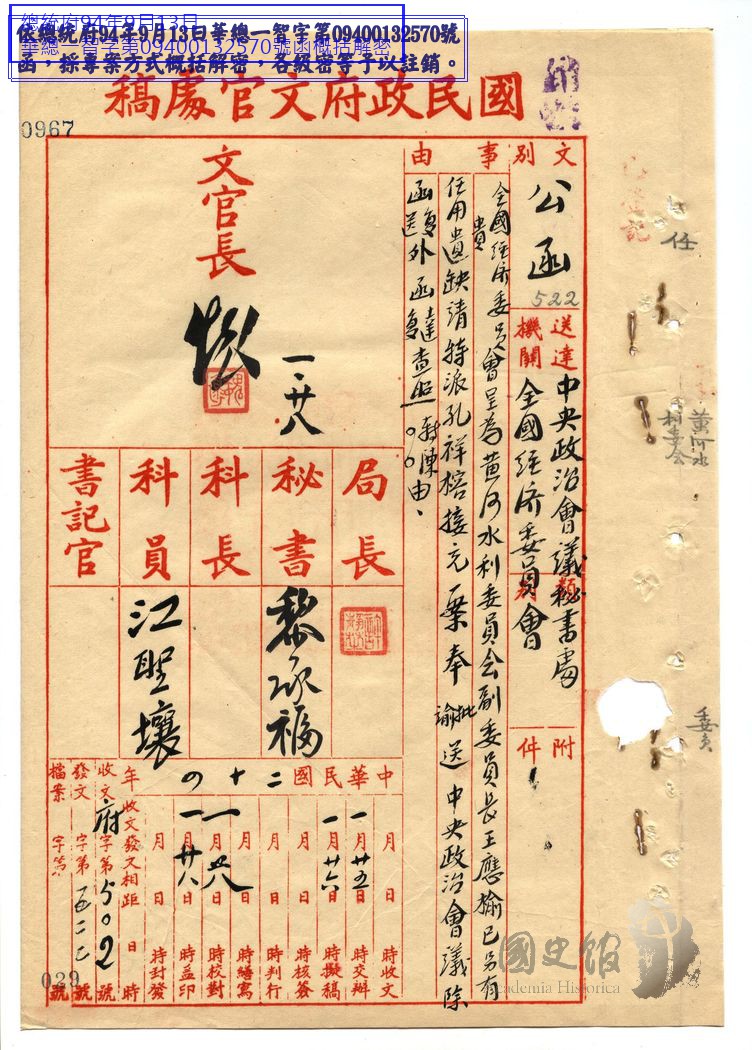 總統府94年9月13日
華總一智字第09400132570號函概括解密
依總統府94年9月13日華總一智字第09400132570號
函，採專案方式概括解密，各級密等予以註銷。
國民政府文官處稿
0967
文別
公函
522
送達機關
中央政治會議秘書處
全國經濟委員會
類別
附件
事由
全國經濟委員會呈為黃河水利委員會副委員長王應榆已另有
任用遺缺請特派孔祥榕接充一案奉
批
諭
送中央政治會議除
函送外函達查照
由
貴
文官長
一、廿八
局長
秘書
科長
科員
書記官
黎承福
江聖壤
中華民國二十四年
月 日 時收文
一月廿五日 時交辦
一月廿六日 時擬稿
月 日 時核簽
月 日 時判行
月 日 時繕寫
一月廿八日 時校對
一月廿八日 時蓋印
月 日 時封發
收文發文相距 日 時
收文 府字第502號
發文 字第五二二號
檔案 字第 號
029
任
黃河水利委會
委員
國史館
Academia Historica